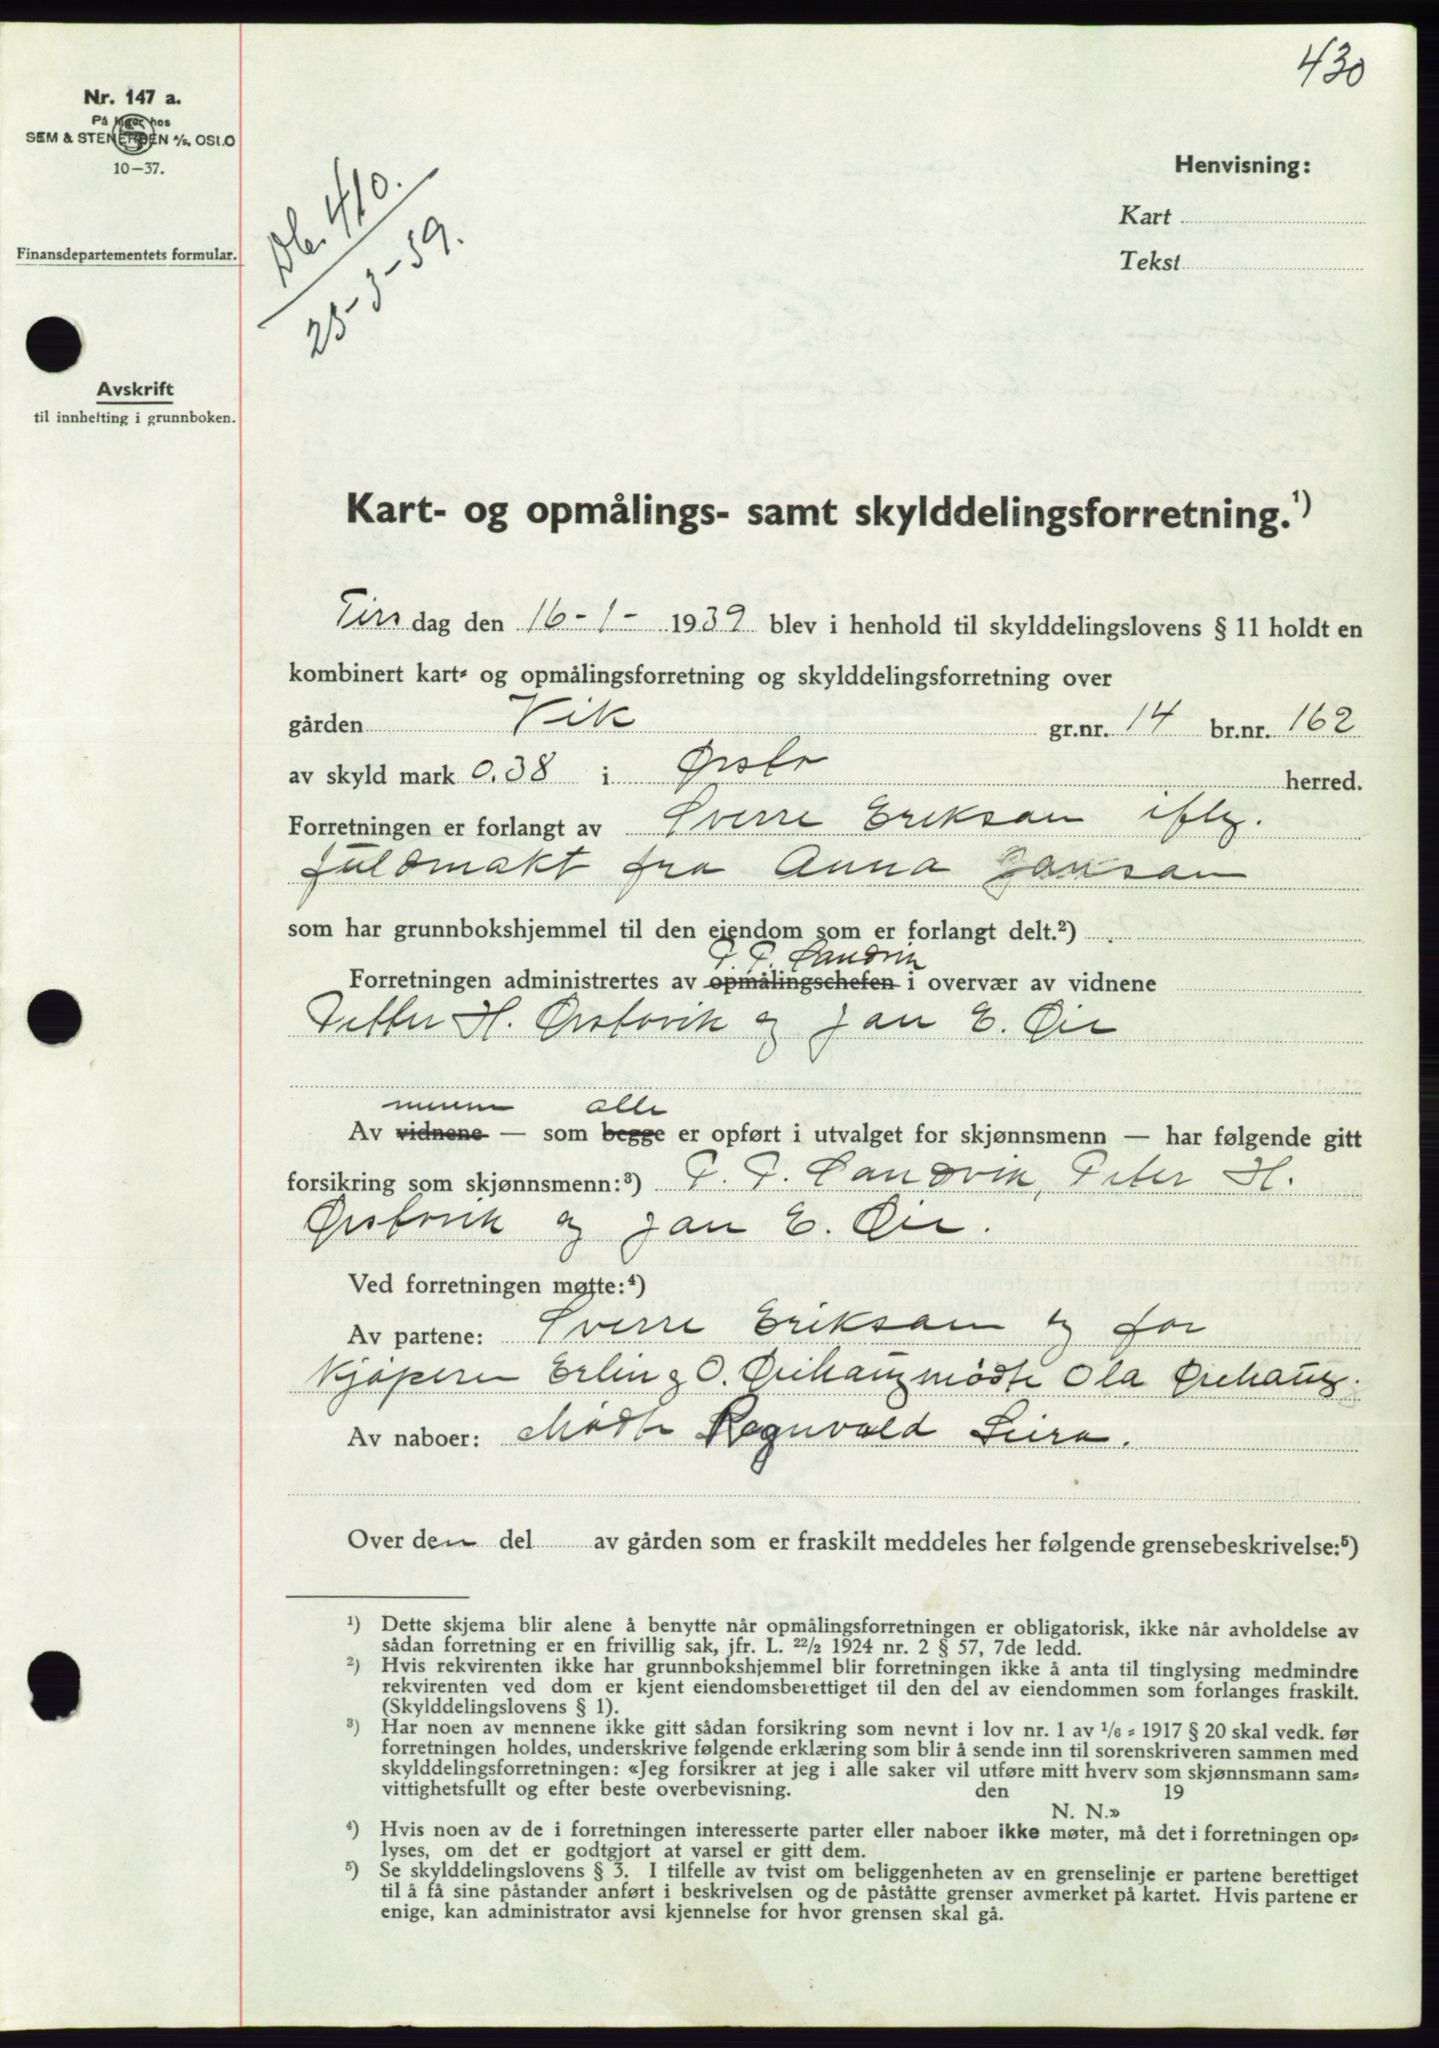 430
Nr. 147 a.
På lager hos
SEM & STENERSEN A/S, OSLO
10-37.
Finansdepartementets formular.
Avskrift
til innhefting i grunnboken.
Db. 410.
25-3-39.
Henvisning:
Kart
Tekst
Kart- og opmålings- samt skylddelingsforretning.¹)
Tirsdag den 16-1- 1939 blev i henhold til skylddelingslovens § 11 holdt en
kombinert kart- og opmålingsforretning og skylddelingsforretning over
gården Vik gr.nr. 14 br.nr. 162
av skyld mark 0.38 i Ørsta herred.
Forretningen er forlangt av Sverre Eriksen iflg.
fuldmakt fra Anna Jansen
som har grunnbokshjemmel til den eiendom som er forlangt delt.²)
P. P. Sandvik
Forretningen administrertes av opmålingschefen i overvær av vidnene
Petter H. Ørstavik og Jan E. Øie
mennene alle
Av vidnene — som begge er opført i utvalget for skjønnsmenn — har følgende gitt
forsikring som skjønnsmenn:³) P. P. Sandvik, Peter H.
Ørstavik og Jan E. Øie.
Ved forretningen møtte:⁴)
Av partene: Sverre Eriksen og for
kjøperen Erling O. Øiehaug mødte Ola Øiehaug.
Av naboer: Mødte Ragnvald Leira.
Over den del av gården som er fraskilt meddeles her følgende grensebeskrivelse:⁵)
¹) Dette skjema blir alene å benytte når opmålingsforretningen er obligatorisk, ikke når avholdelse av
sådan forretning er en frivillig sak, jfr. L. 22/2 1924 nr. 2 § 57, 7de ledd.
²) Hvis rekvirenten ikke har grunnbokshjemmel blir forretningen ikke å anta til tinglysing medmindre
rekvirenten ved dom er kjent eiendomsberettiget til den del av eiendommen som forlanges fraskilt.
(Skylddelingslovens § 1).
³) Har noen av mennene ikke gitt sådan forsikring som nevnt i lov nr. 1 av 1/6 - 1917 § 20 skal vedk. før
forretningen holdes, underskrive følgende erklæring som blir å sende inn til sorenskriveren sammen med
skylddelingsforretningen: «Jeg forsikrer at jeg i alle saker vil utføre mitt hverv som skjønnsmann sam-
vittighetsfullt og efter beste overbevisning. den 19
N. N.»
⁴) Hvis noen av de i forretningen interesserte parter eller naboer ikke møter, må det i forretningen op-
lyses, om det er godtgjort at varsel er gitt dem.
⁵) Se skylddelingslovens § 3. I tilfelle av tvist om beliggenheten av en grenselinje er partene berettiget
til å få sine påstander anført i beskrivelsen og de påståtte grenser avmerket på kartet. Hvis partene er
enige, kan administrator avsi kjennelse for hvor grensen skal gå.